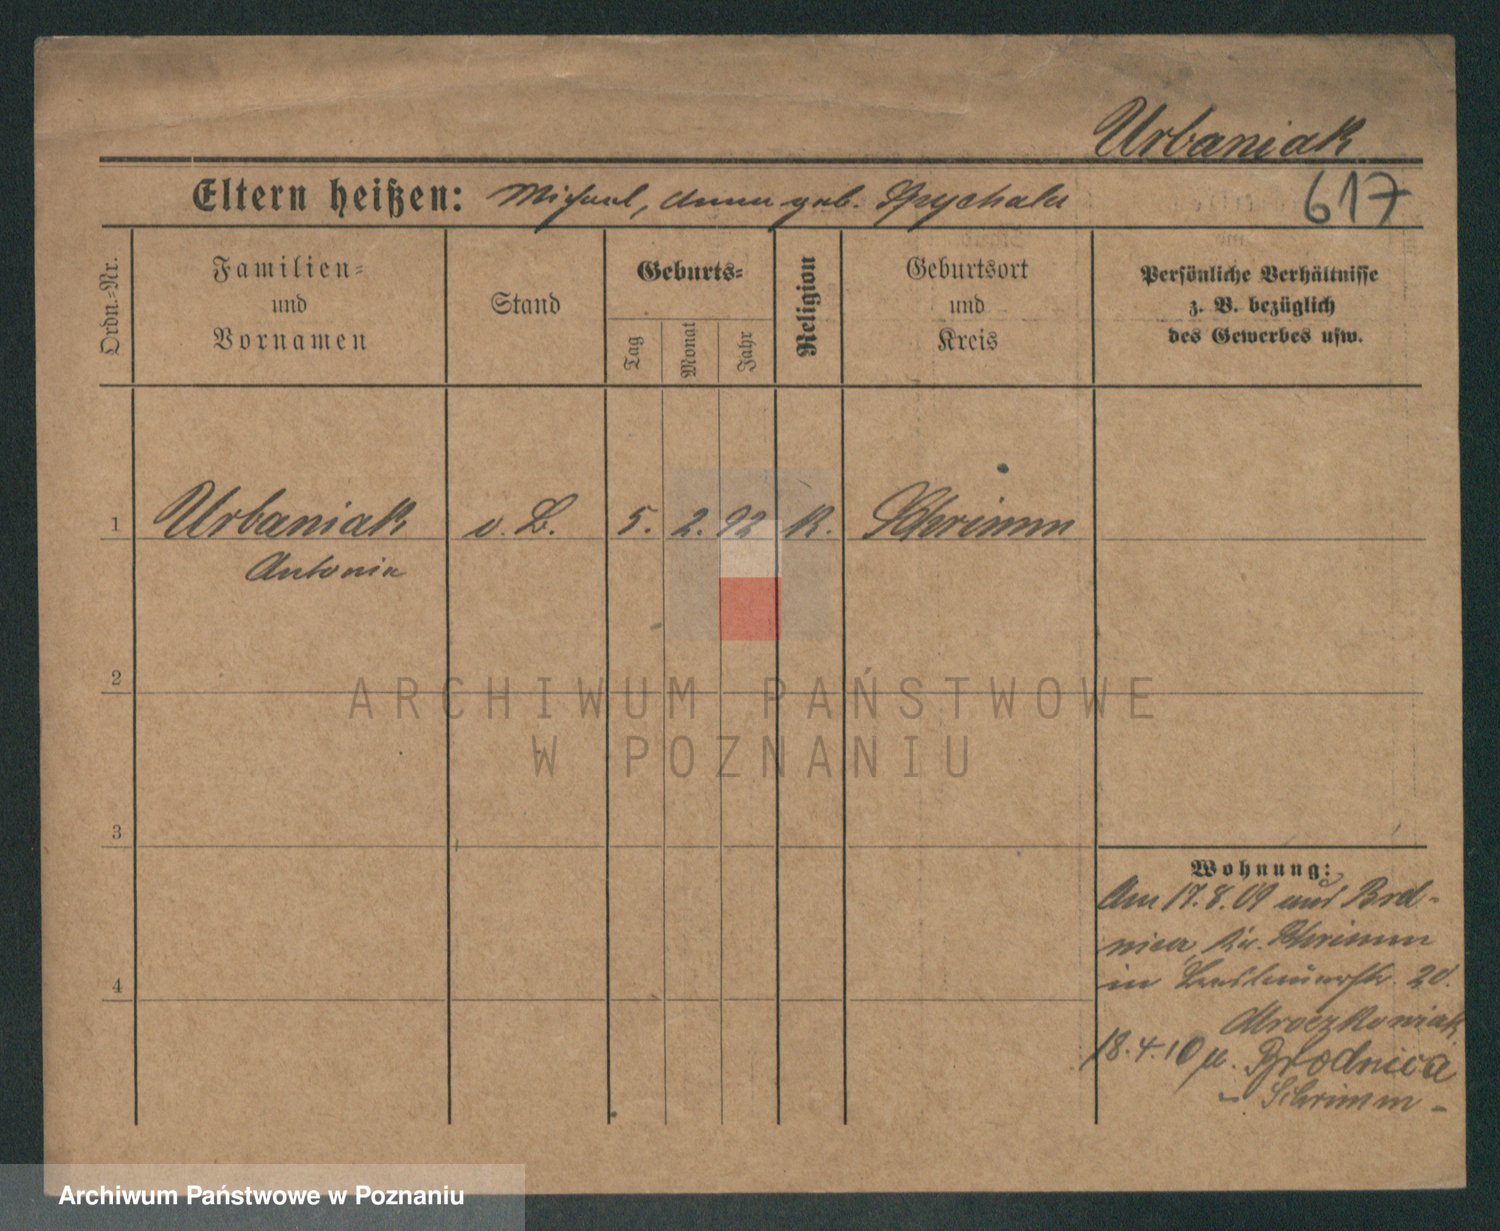 Urbaniak
617
Eltern heißen: Michael, Anna geb. Spychala
Ordn.-Nr.
Familien-
und
Vornamen
Stand
Geburts-
Tag
Monat
Jahr
Religion
Geburtsort
und
Kreis
Persönliche Verhältnisse
z. B. bezüglich
des Gewerbes usw.
1 Urbaniak o. B. 5. 2. 92 K. Schrimm
Antonia
2
ARCHIWUM PAŃSTWOWE
W POZNANIU
3
Wohnung:
Am 17.8.09 aus Brod-
nica, Kr. Schrimm
4
in 20.
Mroczkowiak
18.4.10 n. Brodnica
- Schrimm -
Archiwum Państwowe w Poznaniu